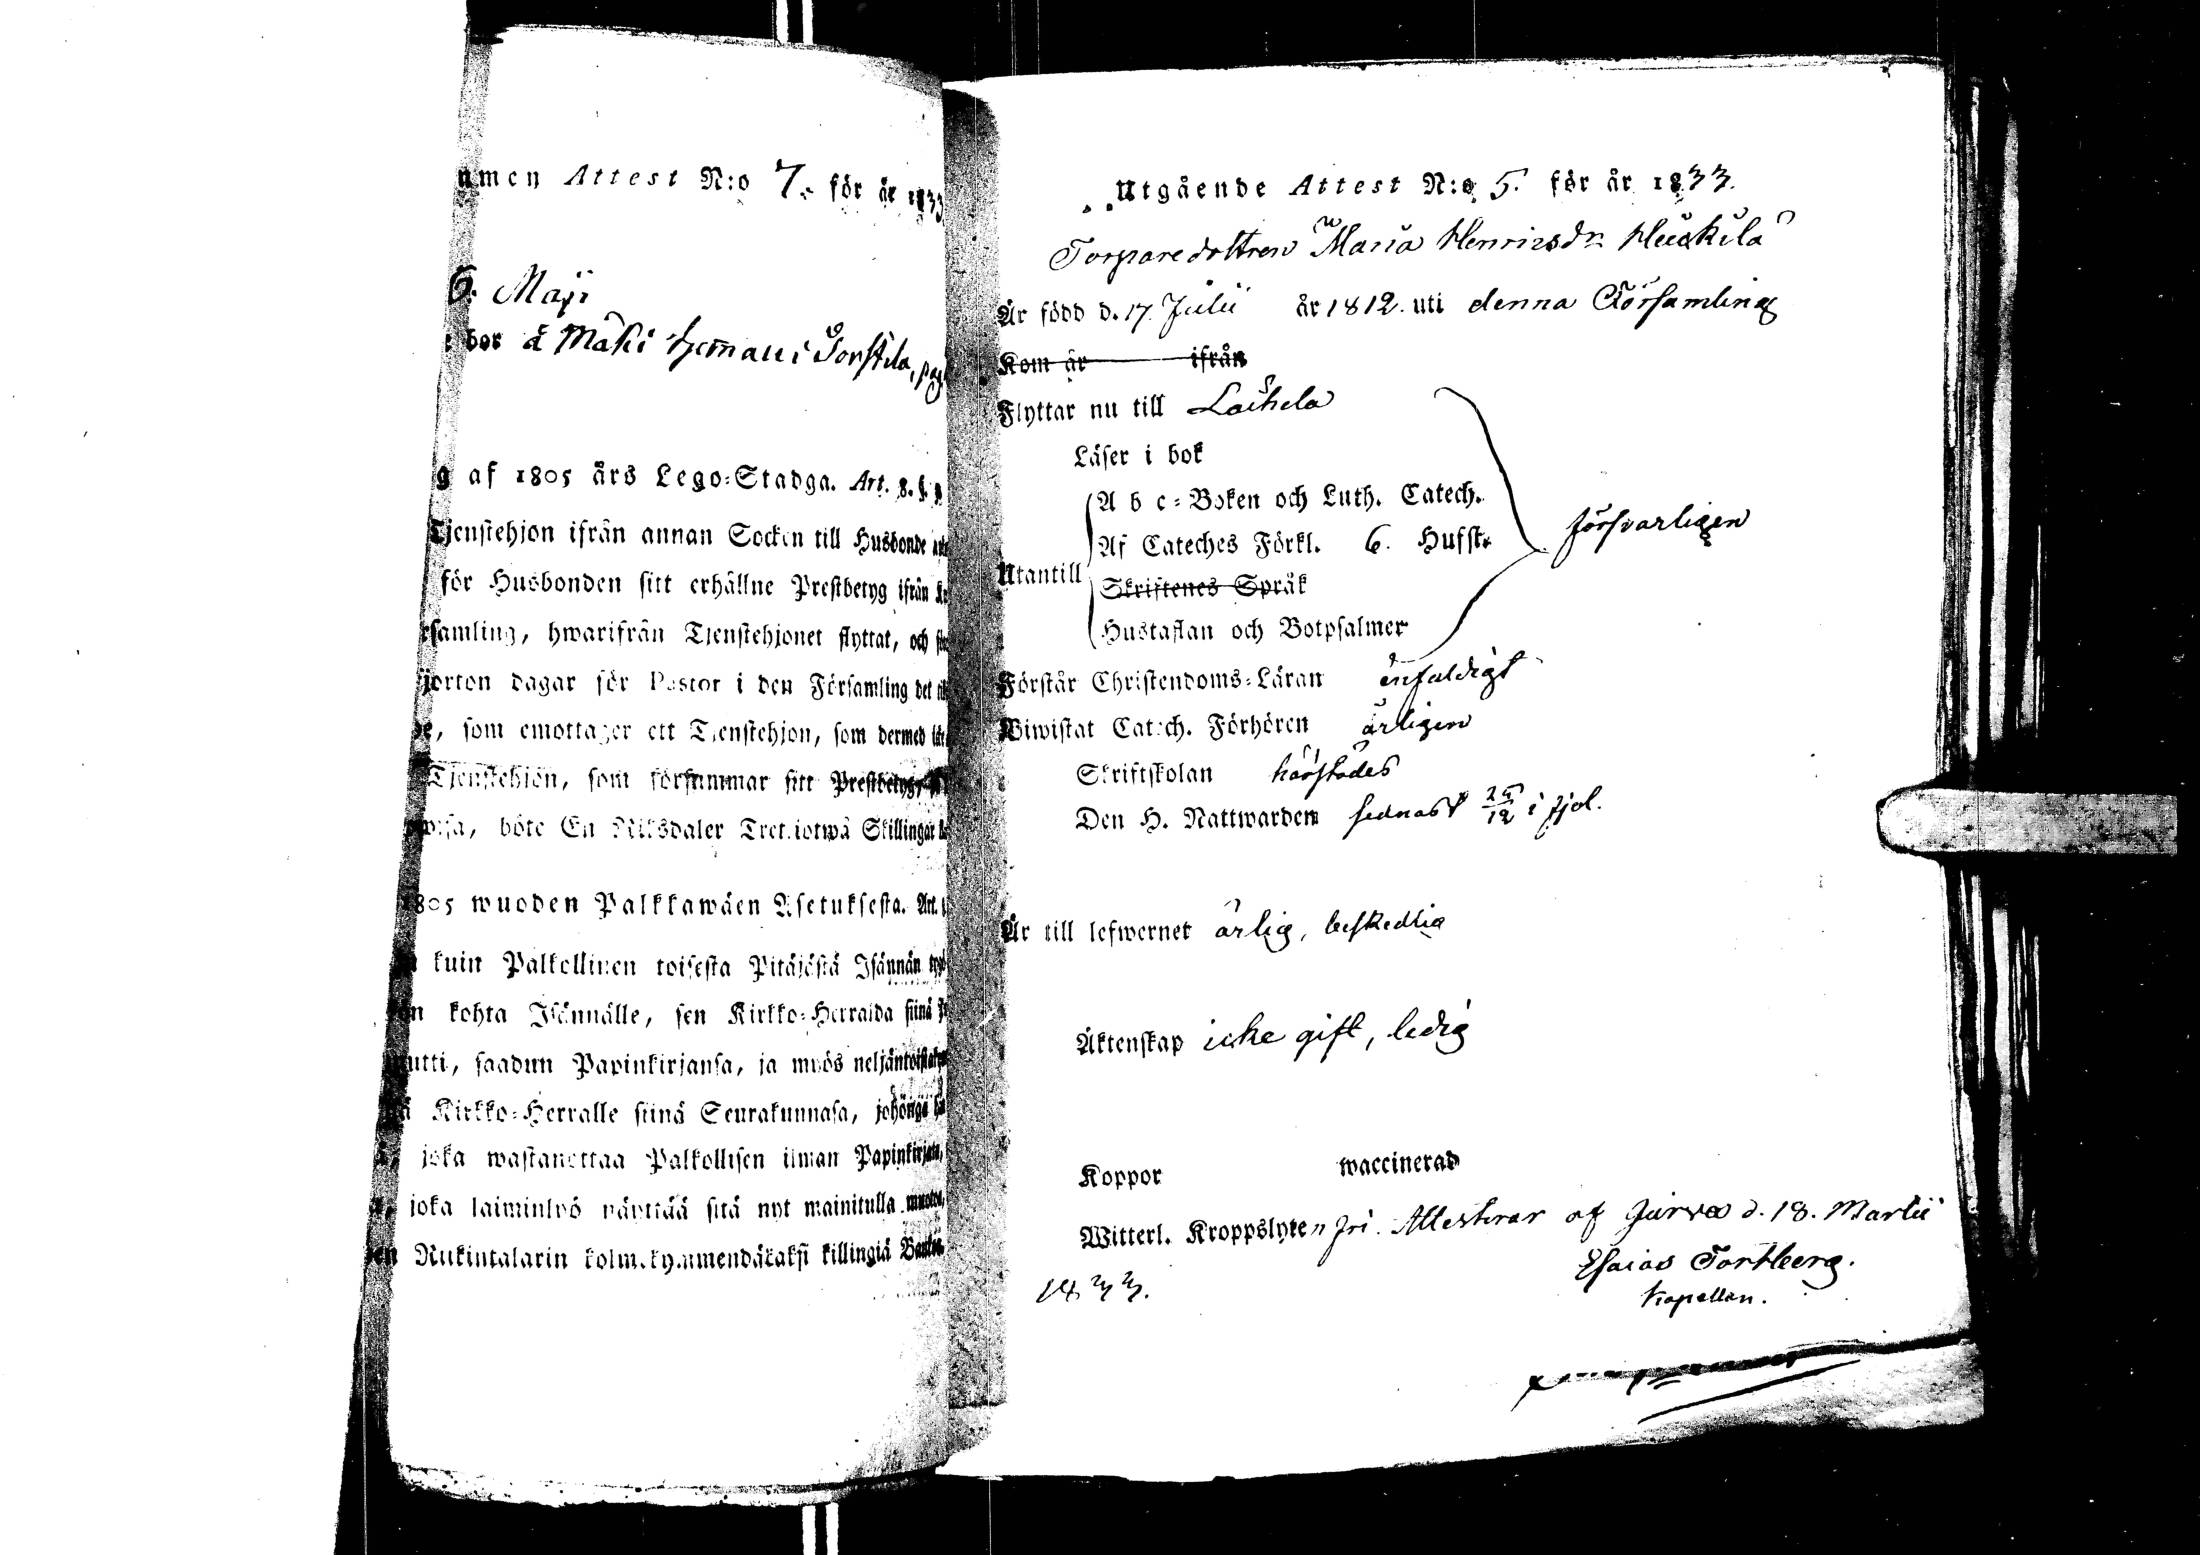 Attest N:o 7. för år 1833
6. Maji
bor å Mäki heman i Jonstila, pag.
af 1805 års Lego-Stadga. Art. 8. §.
Tjenstehjon ifrån annan Socken till Husbonde
för Husbonden sitt erhållne Prestbetyg ifrån
hwarifrån Tjenstehjonet flyttat, och
fjorton dagar för Pastor i den Församling det
som emottager ett Tjenstehjon, som dermed
Tjenstehjon, som försummar sitt Prestbetyg,
böte En Riksdaler Trettiotwå Skillingar
1805 wuoden Palkkawäen Asetuksesta. Art.
kuin Palkollinen toisesta Pitäjästä Isännän
kohta Isännälle, sen Kirkko-Herralda siinä
saadun Papinkirjansa, ja myös
Kirkko-Herralle siinä Seurakunnasa, johonga
joka wastanottaa Palkollisen ilman Papinkirjata,
joka laiminlyö näyttää sitä nyt mainitulla muotoa,
Rikintalarin kolmekymmendäkaksi killingiä
Utgående Attest N:o 5. för år 1833.
Torparedottren Maria Henricsdr. Heikilä
Är född d. 17. Julii år 1812. uti denna Församling
Kom år ifrån
Flyttar nu till Laihela
Läser i bok
A b c-Boken och Luth. Catech.
Af Cateches Förkl. 6. Hufst. försvarligen
Utantill
Skriftenes Språk
Hustaflan och Botpsalmer
Förstår Christendoms-Läran enfaldigt
Biwistat Catech. Förhören årligen
Skriftskolan härstädes
Den H. Nattwarden sednast 25/12 i fjol.
Är till lefwernet ärlig, beskedlig
Äktenskap icke gift, ledig
Koppor waccinerad
Witterl. Kroppslyten fri. Attesterar af Jurva d. 18. Martii
1833.
Esaias Fortberg.
Kapellan.